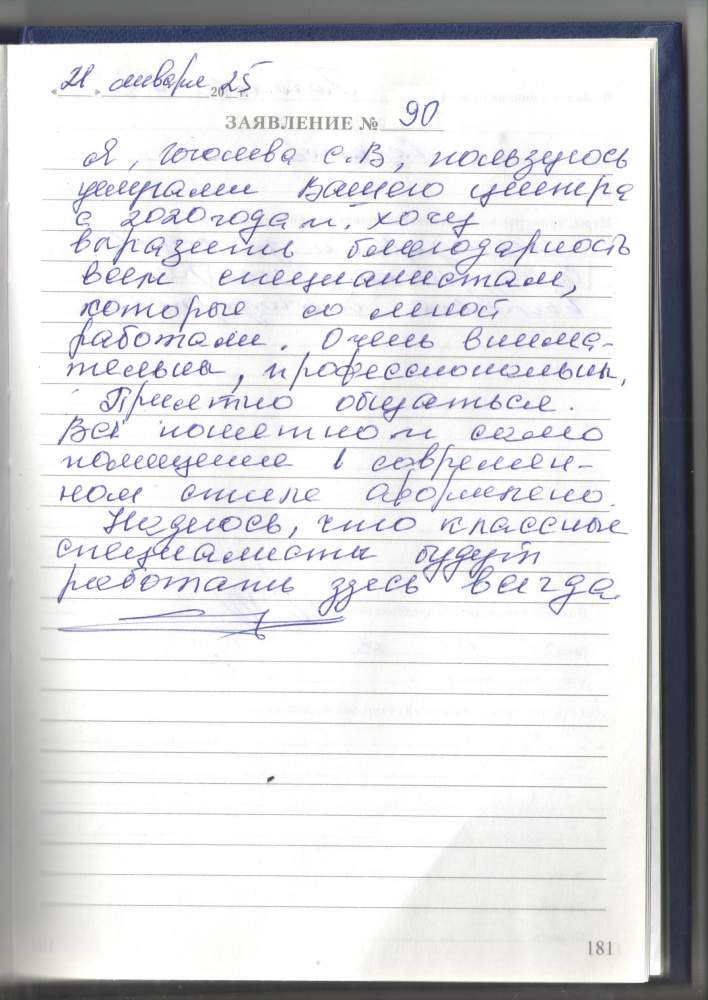 «21» января 2025 г.
ЗАЯВЛЕНИЕ № 90
Я, Гоголева С.В, пользуюсь
услугами Вашего центра
с 2020 года и хочу
выразить благодарность
всем специалистам,
которые со мной
работали. Очень внима-
тельны, профессиональны.
Приятно общаться.
Всё понятно и само
помещение в современ-
ном стиле оформлено.
Надеюсь, что классные
специалисты будут
работать здесь всегда
181